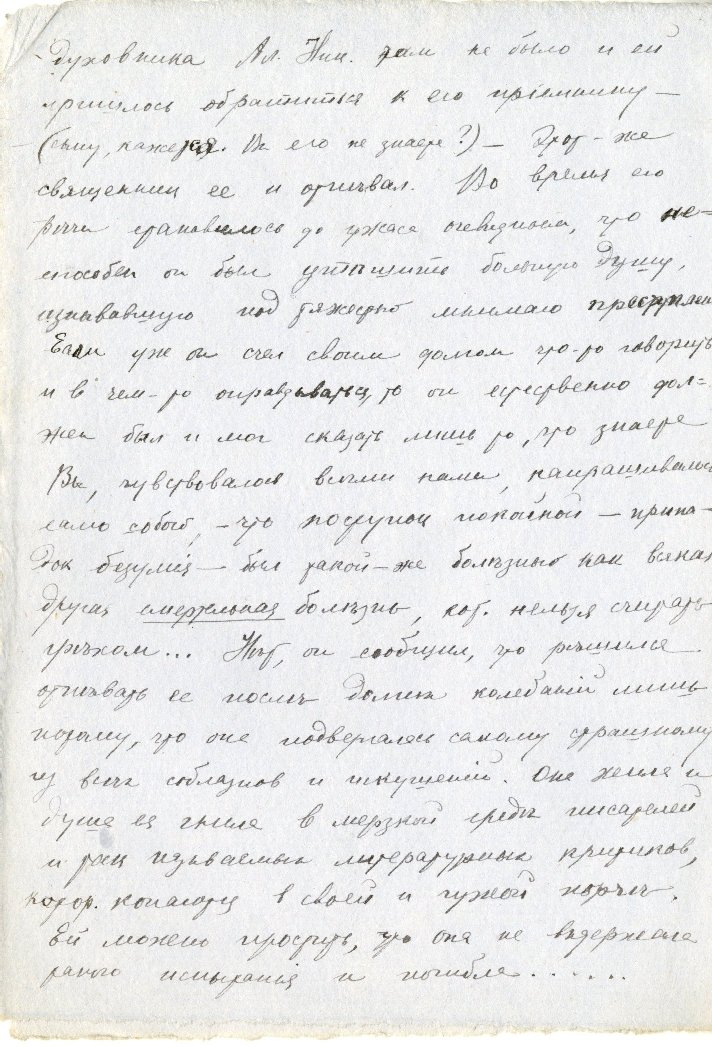 духовника Ал. Ник. там не было и ей
пришлось обратиться к его пріемнику —
(сыну, кажется. Вы его не знаете?) — Этот-же
священник ее и отпѣвал. Во время его
рѣчи становилось до ужаса очевидным, что не-
способен он был утѣшить больную душу,
изнывавшую под тяжестью мнимаго преступл
Если уж он счел своим долгом что-то говорить
и в чем-то оправдываться, то он естественно дол-
жен был и мог сказать лишь то, что знаете
Вы, чувствовалось всѣми нами, напрашивалось
само собою, — что поступок покойной — припа-
док безумія — был такой-же болѣзнью как всякая
другая смертельная болѣзнь, кот. нельзя считать
грѣхом... Нѣт, он сообщил, что рѣшился
отпѣвать ее послѣ долгих колебаній лишь
потому, что она подвергалась самому страшному
из всѣх соблазнов и искушеній. Она жила и
душа ея гнила в мерзкой средѣ писателей
и так называемых литературных критиков,
котор. копаются в своей и чужой порчѣ.
Ей можно простить, что она не выдержала
такого испытанія и погибла......